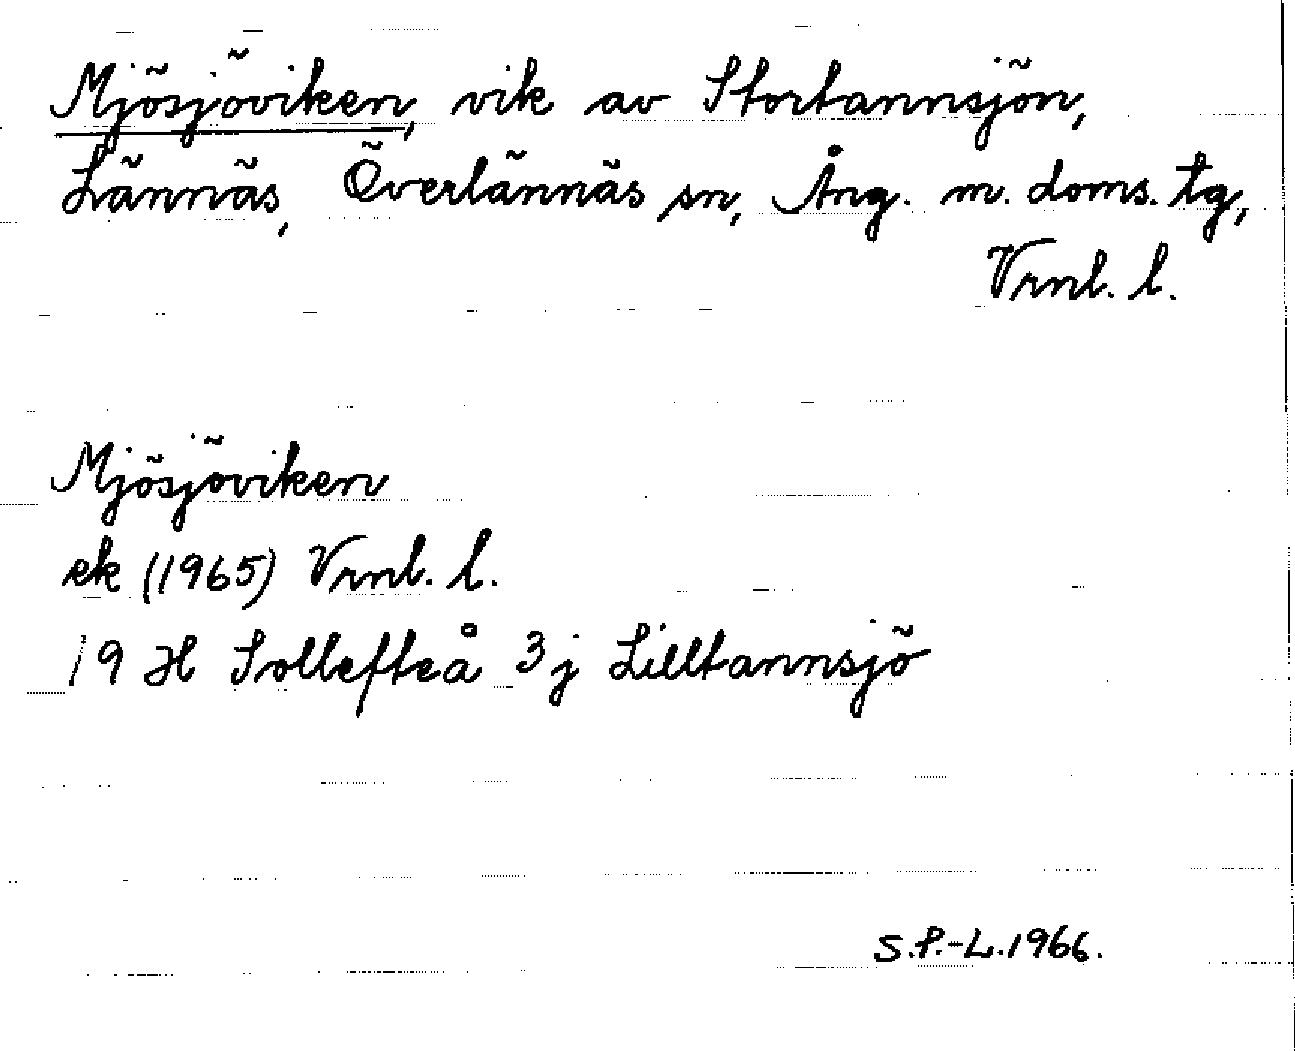 Mjösjöviken, vik av Stortannsjön,
Lännäs, Överlännäs sn, Ång. m. doms. tg,
Vrnl. l.
Mjösjöviken
ek (1965) Vrnl. l.
19 H Sollefteå 3j Lilltannsjö
S.P.-L. 1966.